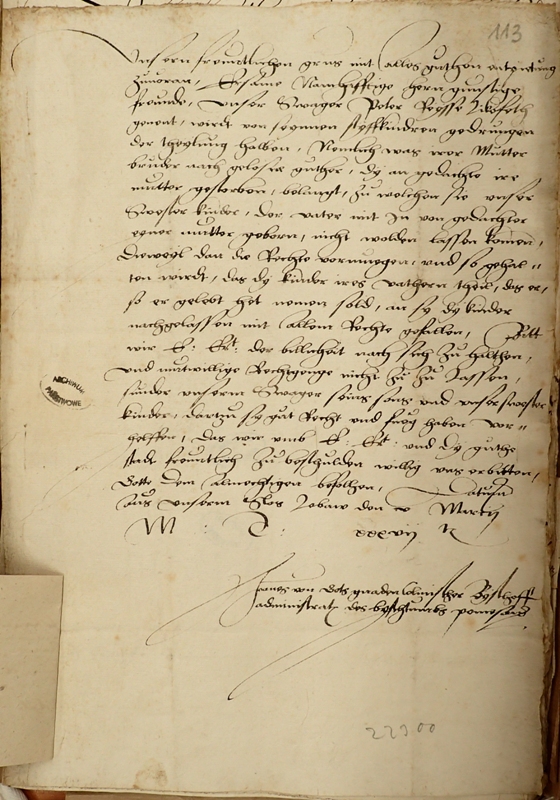 113
Unsern freuntlichen grus mit alles guthen entpietung
zuvoran, Ersame Namhafftige hern gunstige
freunde, Unser Swager Peter
genent, wirdt von seynnen styffkindren gedrungen
der theylung halben, Nemlich was irer Mutter
bruder nach gelosner guther, dy an gedachte ire
mutter gestorben, belangt, zu welchen sie unser
Swester kinder, der vater mit In von gedachter
eyner mutter geborn, nicht wolden lassen komen,
Dieweyl dan die Rechte vormuegen, und so gehal-
ten wirdt, das dy kinder ires vathern theil, das er,
so er gelebt het nemen sold, an sy dy kinder
nachgelassen mit allem Rechte gefallen, Bitt
wir E: Er: der billicheit nach sich zu halthen,
und mutwillige Rechtgenge nicht zu zu lassen,
sunder unserm Swager seins sons und unser swester
kinder, dartzu sy gut Recht und fueg haben vor-
helffen, Das wir umb E: Er: und dy guthe
stadt freuntlich zu beschulden willig uns erbitten,
Gotte dem almechtigen befolhen, Datum
aus unserm Slos Lobaw den v Martij
M : D : xxxvij
von Gots gnaden Colmischer Bischoff
administrator des bischtumbs pomezan
ARCHIWUM
PAŃSTWOWE
22300